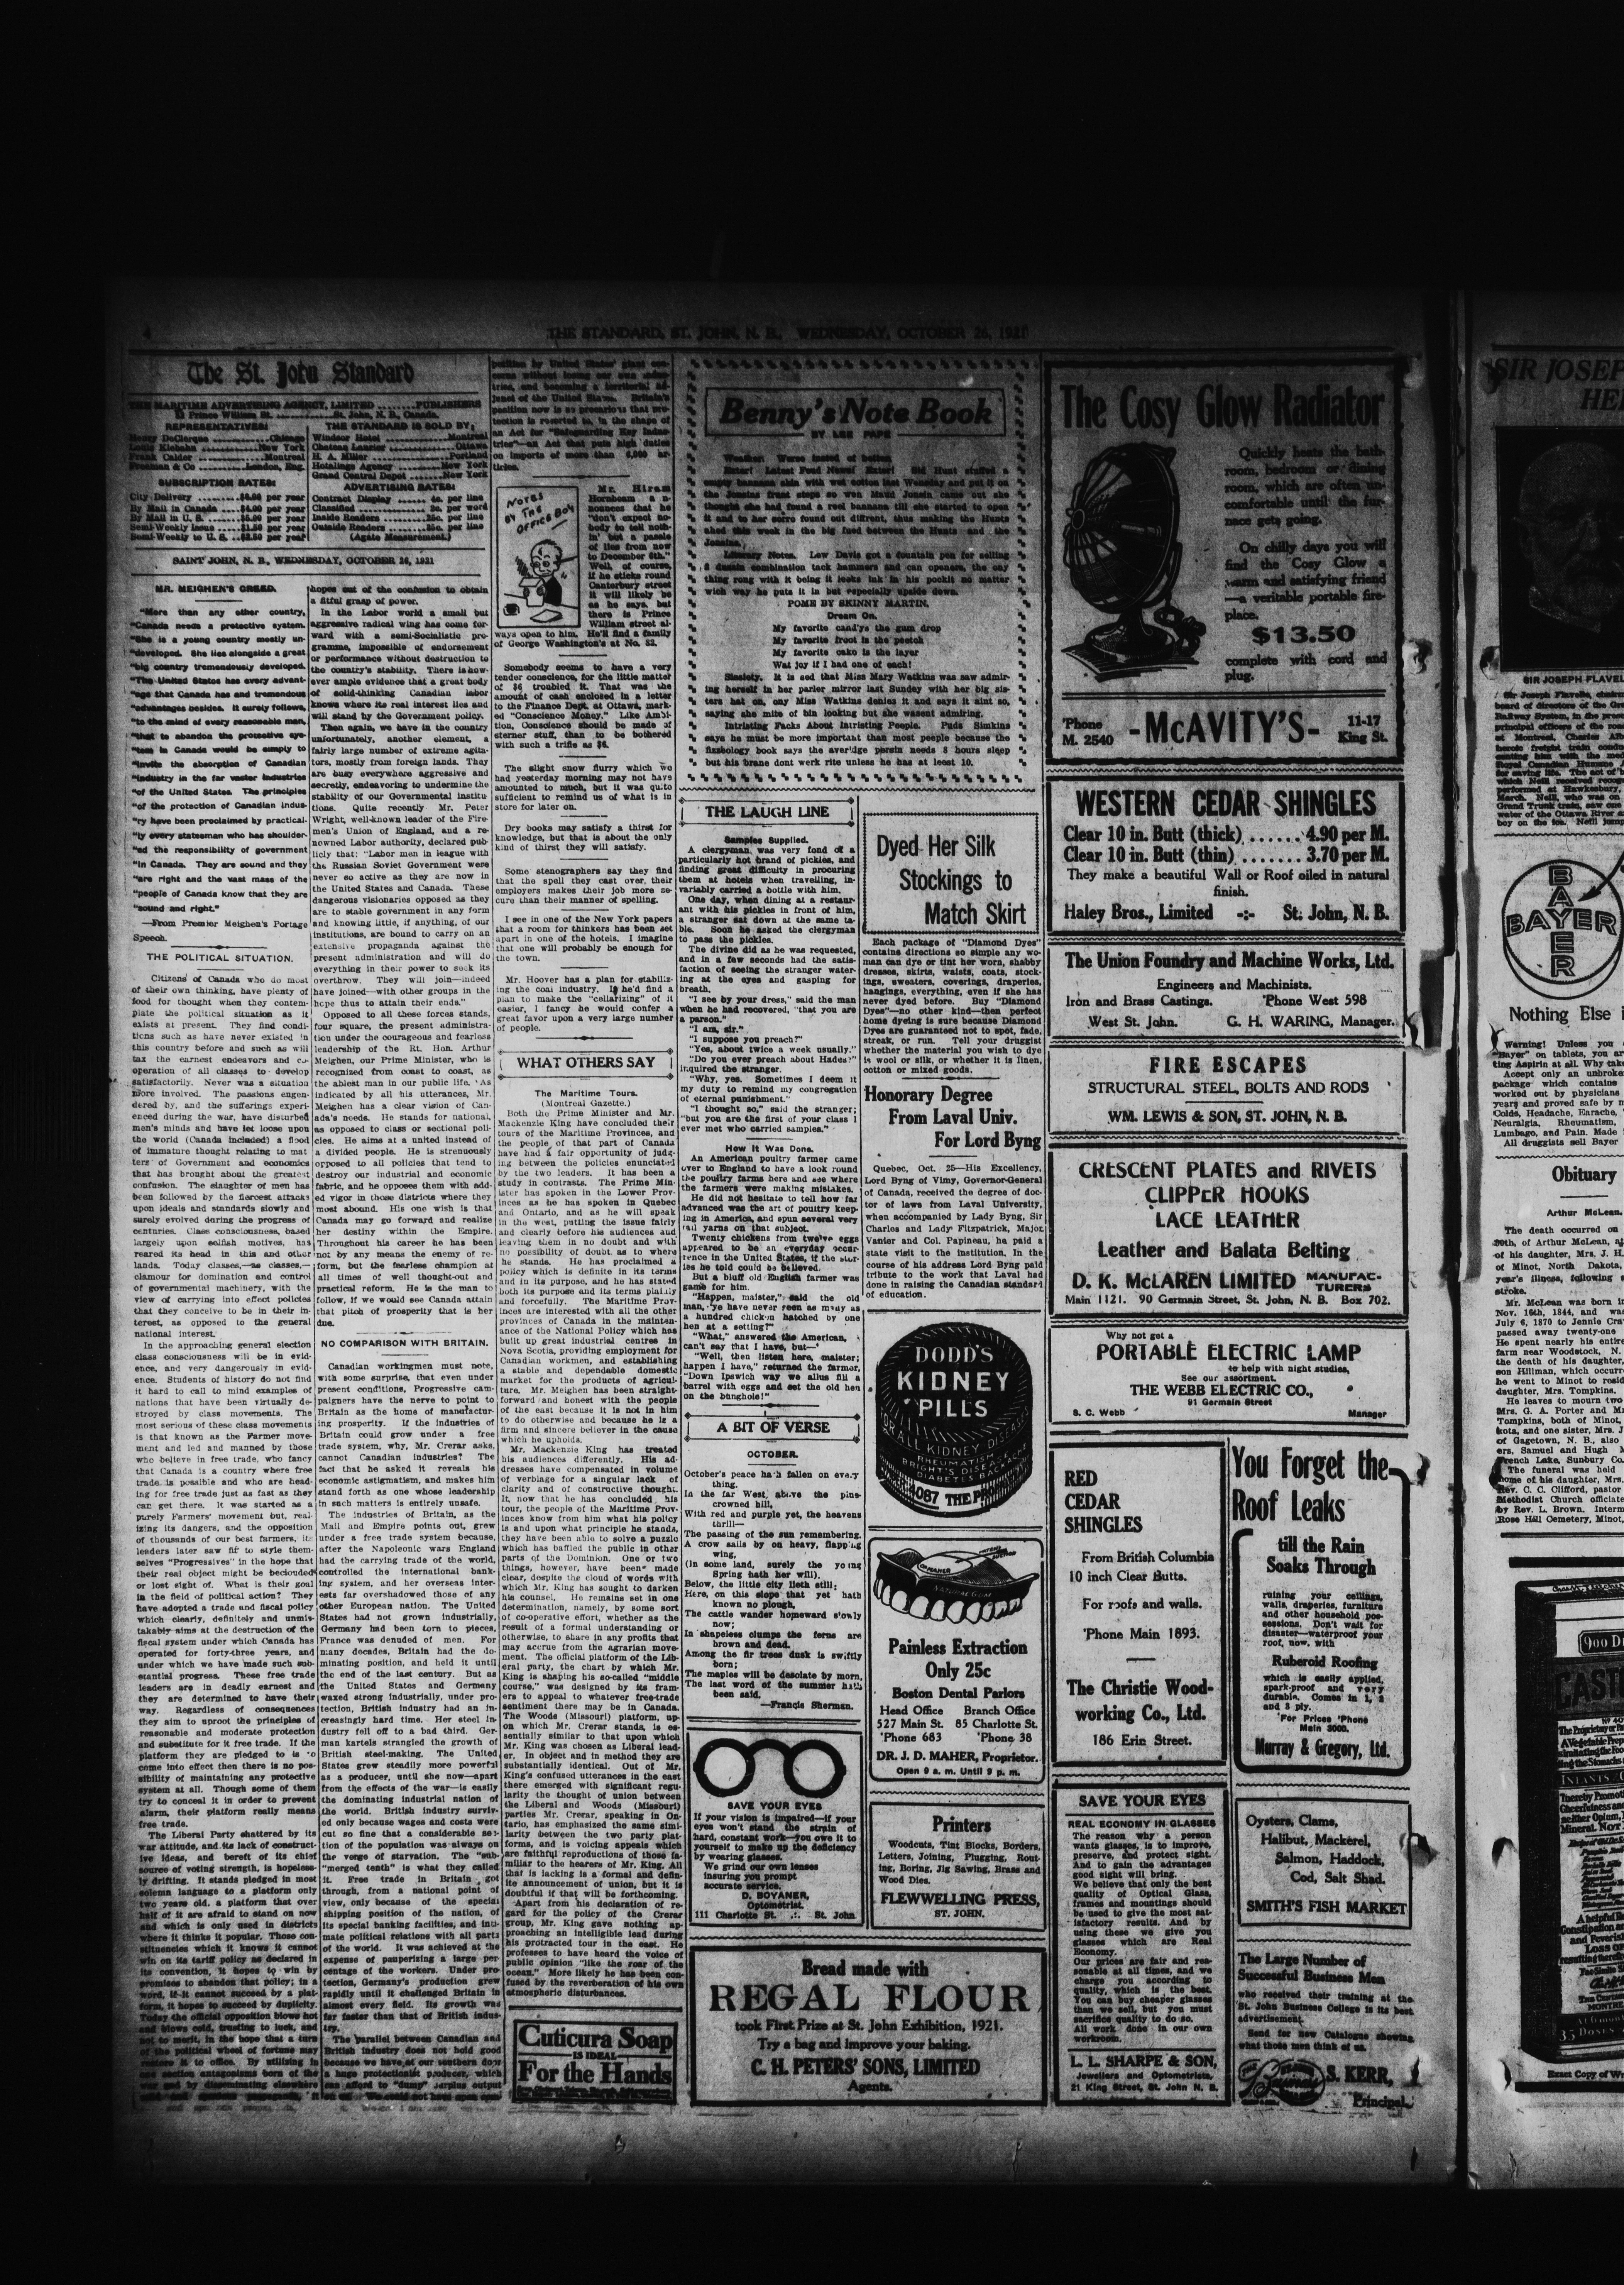 4
THE STANDARD, ST. JOHN, N. B., WEDNESDAY, OCTOBER 26, 1921
The St. John Standard
THE MARITIME ADVERTISING AGENCY, LIMITED ........ PUBLISHERS
82 Prince William St. ............ St. John, N. B., Canada.
REPRESENTATIVES:
Henry DeClerque ............ Chicago
Louis Klebahn ............ New York
Frank Calder ............ Montreal
Freeman & Co ........ London, Eng.
SUBSCRIPTION RATES:
City Delivery ........ $6.00 per year
By Mail in Canada .... $4.00 per year
By Mail in U. S. ...... $5.00 per year
Semi-Weekly Issue .... $1.50 per year
Semi-Weekly to U. S. .. $2.50 per year
THE STANDARD IS SOLD BY:
Windsor Hotel ............ Montreal
Chateau Laurier ............ Ottawa
H. A. Miller ............ Portland
Hotalings Agency ........ New York
Grand Central Depot ...... New York
ADVERTISING RATES:
Contract Display ...... 4c. per line
Classified ............ 2c. per word
Inside Readers ........ 25c. per line
Outside Readers ...... 35c. per line
(Agate Measurement.)
SAINT JOHN, N. B., WEDNESDAY, OCTOBER 26, 1921
MR. MEIGHEN'S CREED.
"More than any other country,
"Canada needs a protective system.
"She is a young country mostly un-
"developed. She lies alongside a great
"big country tremendously developed.
"The United States has every advant-
"age that Canada has and tremendous
"advantages besides. It surely follows,
"to the mind of every reasonable man,
"that to abandon the protective sys-
"tem in Canada would be simply to
"invite the absorption of Canadian
"industry in the far vaster industries
"of the United States. The principles
"of the protection of Canadian indus-
"ry have been proclaimed by practical-
"ly every statesman who has shoulder-
"ed the responsibility of government
"in Canada. They are sound and they
"are right and the vast mass of the
"people of Canada know that they are
"sound and right."
—From Premier Meighen's Portage
Speech.
THE POLITICAL SITUATION.
Citizens of Canada who do most
of their own thinking, have plenty of
food for thought when they contem-
plate the political situation as it
exists at present. They find condi-
tions such as have never existed in
this country before and such as will
tax the earnest endeavors and co-
operation of all classes to develop
satisfactorily. Never was a situation
more involved. The passions engen-
dered by, and the sufferings experi-
enced during the war, have disturbed
men's minds and have let loose upon
the world (Canada included) a flood
of immature thought relating to mat
ters of Government and economics
that has brought about the greatest
confusion. The slaughter of men has
been followed by the fiercest attacks
upon ideals and standards slowly and
surely evolved during the progress of
centuries. Class consciousness, based
largely upon selfish motives, has
reared its head in this and other
lands. Today classes,—as classes,—
clamour for domination and control
of governmental machinery, with the
view of carrying into effect policies
that they conceive to be in their in-
terest, as opposed to the general
national interest.
In the approaching general election
class consciousness will be in evid-
ence, and very dangerously in evid-
ence. Students of history do not find
it hard to call to mind examples of
nations that have been virtually de-
stroyed by class movements. The
most serious of these class movements
is that known as the Farmer move-
ment and led and manned by those
who believe in free trade, who fancy
that Canada is a country where free
trade is possible and who are head-
ing for free trade just as fast as they
can get there. It was started as a
purely Farmers' movement but, real-
izing its dangers, and the opposition
of thousands of our best farmers, its
leaders later saw fit to style them-
selves "Progressives" in the hope that
their real object might be beclouded
or lost sight of. What is their goal
in the field of political action? They
have adopted a trade and fiscal policy
which clearly, definitely and unmis-
takably aims at the destruction of the
fiscal system under which Canada has
operated for forty-three years, and
under which we have made such sub-
stantial progress. These free trade
leaders are in deadly earnest and
they are determined to have their
way. Regardless of consequences
they aim to uproot the principles of
reasonable and moderate protection
and substitute for it free trade. If the
platform they are pledged to is to
come into effect then there is no pos-
sibility of maintaining any protective
system at all. Though some of them
try to conceal it in order to prevent
alarm, their platform really means
free trade.
The Liberal Party shattered by its
war attitude, and its lack of construct-
ive ideas, and bereft of its chief
source of voting strength, is hopeless-
ly drifting. It stands pledged in most
solemn language to a platform only
two years old, a platform that over
half of it are afraid to stand on now
and which is only used in districts
where it thinks it popular. Those con-
stituencies which it knows it cannot
win on its tariff policy as declared in
its convention, it hopes to win by
promises to abandon that policy; in a
word, if it cannot succeed by a plat-
form, it hopes to succeed by duplicity.
Today the official opposition blows hot
and blows cold, trusting to luck, and
not to merit, in the hope that a turn
of the political wheel of fortune may
restore it to office. By utilizing in
one section antagonisms born of the
war and by disseminating elsewhere
hopes out of the confusion to obtain
a fitful grasp of power.
In the Labor world a small but
aggressive radical wing has come for-
ward with a semi-Socialistic pro-
gramme, impossible of endorsement
or performance without destruction to
the country's stability. There is how-
ever ample evidence that a great body
of solid-thinking Canadian labor
knows where its real interest lies and
will stand by the Government policy.
Then again, we have in the country
unfortunately, another element, a
fairly large number of extreme agita-
tors, mostly from foreign lands. They
are busy everywhere aggressive and
secretly, endeavoring to undermine the
stability of our Governmental institu
tions. Quite recently Mr. Peter
Wright, well-known leader of the Fire-
men's Union of England, and a re-
nowned Labor authority, declared pub-
licly that: "Labor men in league with
the Russian Soviet Government were
never so active as they are now in
the United States and Canada. These
dangerous visionaries opposed as they
are to stable government in any form
and knowing little, if anything, of our
institutions, are bound to carry on an
extensive propaganda against the
present administration and will do
everything in their power to seek its
overthrow. They will join—indeed
have joined—with other groups in the
hope thus to attain their ends."
Opposed to all these forces stands,
four square, the present administra-
tion under the courageous and fearless
leadership of the Rt. Hon. Arthur
Meighen, our Prime Minister, who is
recognized from coast to coast, as
the ablest man in our public life. As
indicated by all his utterances, Mr.
Meighen has a clear vision of Can-
ada's needs. He stands for national,
as opposed to class or sectional poli-
cies. He aims at a united instead of
a divided people. He is strenuously
opposed to all policies that tend to
destroy our industrial and economic
fabric, and he opposes them with add-
ed vigor in those districts where they
most abound. His one wish is that
Canada may go forward and realize
her destiny within the Empire.
Throughout his career he has been
not by any means the enemy of re-
form, but the fearless champion at
all times of well thought-out and
practical reform. He is the man to
follow, if we would see Canada attain
that pitch of prosperity that is her
due.
NO COMPARISON WITH BRITAIN.
Canadian workingmen must note,
with some surprise, that even under
present conditions, Progressive cam-
paigners have the nerve to point to
Britain as the home of manufactur-
ing prosperity. If the industries of
Britain could grow under a free
trade system, why, Mr. Crerar asks,
cannot Canadian industries? The
fact that he asked it reveals his
economic astigmatism, and makes him
stand forth as one whose leadership
in such matters is entirely unsafe.
The industries of Britain, as the
Mail and Empire points out, grew
under a free trade system because,
after the Napoleonic wars England
had the carrying trade of the world,
controlled the international bank-
ing system, and her overseas inter-
ests far overshadowed those of any
other European nation. The United
States had not grown industrially,
Germany had been torn to pieces,
France was denuded of men. For
many decades, Britain had the do-
minating position, and held it until
the end of the last century. But as
the United States and Germany
waxed strong industrially, under pro-
tection, British industry had an in-
creasingly hard time. Her steel in-
dustry fell off to a bad third. Ger-
man kartels strangled the growth of
British steel-making. The United
States grew steadily more powerful
as a producer, until she now—apart
from the effects of the war—is easily
the dominating industrial nation of
the world. British industry surviv-
ed only because wages and costs were
cut so fine that a considerable sec-
tion of the population was always on
the verge of starvation. The "sub-
"merged tenth" is what they called
it. Free trade in Britain got
through, from a national point of
view, only because of the special
shipping position of the nation, of
its special banking facilities, and inti-
mate political relations with all parts
of the world. It was achieved at the
expense of pauperizing a large per-
centage of the workers. Under pro-
tection, Germany's production grew
rapidly until it challenged Britain in
almost every field. Its growth was
far faster than that of British indus-
try.
The parallel between Canadian and
British industry does not hold good
because we have at our southern door
a huge protectionist producer, which
can afford to "dump" surplus output
position by United States' giant con-
cerns without losing our own indus-
tries, and becoming a territorial ad-
junct of the United States. Britain's
position now is so precarious that pro-
tection is resorted to, in the shape of
an Act for "Safeguarding Key Indus-
tries"—an Act that puts high duties
on imports of more than 6,000 ar-
ticles.
NOTES
BY THE
OFFICE BOY
Mr. Hiram
Hornbeam an-
nounces that he
"don't expect no-
body to tell noth-
in' but a passle
of lies from now
to December 6th."
Well, of course,
if he sticks round
Canterbury street
it will likely be
as he says, but
there is Prince
William street al-
ways open to him. He'll find a family
of George Washington's at No. 82.
Somebody seems to have a very
tender conscience, for the little matter
of $6 troubled it. That was the
amount of cash enclosed in a letter
to the Finance Dept. at Ottawa, mark-
ed "Conscience Money." Like Ambi-
tion, Conscience should be made of
sterner stuff, than to be bothered
with such a trifle as $6.
The slight snow flurry which we
had yesterday morning may not have
amounted to much, but it was quite
sufficient to remind us of what is in
store for later on.
Dry books may satisfy a thirst for
knowledge, but that is about the only
kind of thirst they will satisfy.
Some stenographers say they find
that the spell they cast over, their
employers makes their job more se-
cure than their manner of spelling.
I see in one of the New York papers
that a room for thinkers has been set
apart in one of the hotels. I imagine
that one will probably be enough for
the town.
Mr. Hoover has a plan for stabiliz-
ing the coal industry. If he'd find a
plan to make the "cellarizing" of it
easier, I fancy he would confer a
great favor upon a very large number
of people.
WHAT OTHERS SAY
The Maritime Tours.
(Montreal Gazette.)
Both the Prime Minister and Mr.
Mackenzie King have concluded their
tours of the Maritime Provinces, and
the people of that part of Canada
have had a fair opportunity of judg-
ing between the policies enunciated
by the two leaders. It has been a
study in contrasts. The Prime Min-
ister has spoken in the Lower Prov-
inces as he has spoken in Quebec
and Ontario, and as he will speak
in the west, putting the issue fairly
and clearly before his audiences and
leaving them in no doubt and with
no possibility of doubt as to where
he stands. He has proclaimed a
policy which is definite in its terms
and in its purpose, and he has stated
both its purpose and its terms plainly
and forcefully. The Maritime Prov-
inces are interested with all the other
provinces of Canada in the mainten-
ance of the National Policy which has
built up great industrial centres in
Nova Scotia, providing employment for
Canadian workmen, and establishing
a stable and dependable domestic
market for the products of agricul-
ture. Mr. Meighen has been straight-
forward and honest with the people
of the east because it is not in him
to do otherwise and because he is a
firm and sincere believer in the cause
which he upholds.
Mr. Mackenzie King has treated
his audiences differently. His ad-
dresses have compensated in volume
of verbiage for a singular lack of
clarity and of constructive thought.
It, now that he has concluded his
tour, the people of the Maritime Prov-
inces know from him what his policy
is and upon what principle he stands,
they have been able to solve a puzzle
which has baffled the public in other
parts of the Dominion. One or two
things, however, have been made
clear, despite the cloud of words with
which Mr. King has sought to darken
his counsel. He remains set in one
determination, namely, by some sort
of co-operative effort, whether as the
result of a formal understanding or
otherwise, to share in any profits that
may accrue from the agrarian move-
ment. The official platform of the Lib-
eral party, the chart by which Mr.
King is shaping his so-called "middle
course," was designed by its fram-
ers to appeal to whatever free-trade
sentiment there may be in Canada.
The Woods (Missouri) platform, up-
on which Mr. Crerar stands, is es-
sentially similar to that upon which
Mr. King was chosen as Liberal lead-
er. In object and in method they are
substantially identical. Out of Mr.
King's confused utterances in the east
there emerged with significant regu-
larity the thought of union between
the Liberal and Woods (Missouri)
parties Mr. Crerar, speaking in On-
tario, has emphasized the same simi-
larity between the two party plat-
forms, and is voicing appeals which
are faithful reproductions of those fa-
miliar to the hearers of Mr. King. All
that is lacking is a formal and defin-
ite announcement of union, but it is
doubtful if that will be forthcoming.
Apart from his declaration of re-
gard for the policy of the Crerar
group, Mr. King gave nothing ap-
proaching an intelligible lead during
his protracted tour in the east. He
professes to have heard the voice of
public opinion "like the roar of the
ocean." More likely he has been con-
fused by the reverberation of his own
atmospheric disturbances.
Cuticura Soap
IS IDEAL
For the Hands
Benny's Note Book
BY LEE PAPE
Weather. Werse insted of better.
Exter! Latest Feud News! Exter! Sid Hunt stuffed a
empty bannana skin with wet cotton last Wensday and put it on
the Jonsins frunt steps so wen Maud Jonsin came out she
thought she had found a reel bannana till she started to open
it and to her sorro found out diffrent, thus making the Hunts
ahed this week in the big fued between the Hunts and the
Jonsins.
Litterary Notes. Lew Davis got a fountain pen for selling
3 dozzin combination tack hammers and can openers, the ony
thing rong with it being it leeks ink in his pockit no matter
wich way he puts it in but especially upside down.
POME BY SKINNY MARTIN.
Dream On.
My favorite cand'ys the gum drop
My favorite froot is the peetch
My favorite cake is the layer
Wat joy if I had one of each!
Sissiety. It is sed that Miss Mary Watkins was saw admir-
ing herself in her parler mirror last Sunday with her big sis-
ters hat on, ony Miss Watkins denies it and says it aint so,
saying she mite of bin looking but she wasent admiring.
Intristing Facks About Intristing Peeple. Puds Simkins
says he must be more important than most peeple because the
fizzeology book says the aver'idge persin needs 8 hours sleep
but his brane dont werk rite unless he has at leest 10.
THE LAUGH LINE
Samples Supplied.
A clergyman was very fond of a
particularly hot brand of pickles, and
finding great difficulty in procuring
them at hotels when travelling, in-
variably carried a bottle with him.
One day, when dining at a restaur-
ant with his pickles in front of him,
a stranger sat down at the same ta-
ble. Soon he asked the clergyman
to pass the pickles.
The divine did as he was requested,
and in a few seconds had the satis-
faction of seeing the stranger water-
ing at the eyes and gasping for
breath.
"I see by your dress," said the man
when he had recovered, "that you are
a parson."
"I am, sir."
"I suppose you preach?"
"Yes, about twice a week usually."
"Do you ever preach about Hades?"
inquired the stranger.
"Why, yes. Sometimes I deem it
my duty to remind my congregation
of eternal punishment."
"I thought so," said the stranger;
"but you are the first of your class I
ever met who carried samples."
How It Was Done.
An American poultry farmer came
over to England to have a look round
the poultry farms here and see where
the farmers were making mistakes.
He did not hesitate to tell how far
advanced was the art of poultry keep-
ing in America, and spun several very
tall yarns on that subject.
Twenty chickens from twelve eggs
appeared to be an everyday occur-
rence in the United States, if the stor-
ies he told could be believed.
But a bluff old English farmer was
game for him.
"Happen, maister," said the old
man, "ye have never seen as many as
a hundred chicken hatched by one
hen at a setting?"
"What," answered the American, "I
can't say that I have, but—"
"Well, then listen here, maister;
happen I have," returned the farmer,
"Down Ipswich way we allus fill a
barrel with eggs and set the old hen
on the bunghole!"
A BIT OF VERSE
OCTOBER.
October's peace hath fallen on every
thing.
In the far West, above the pine-
crowned hill,
With red and purple yet, the heavens
thrill—
The passing of the sun remembering.
A crow sails by on heavy, flapping
wing,
(In some land, surely the young
Spring hath her will).
Below, the little city lieth still;
Here, on this slope that yet hath
known no plough,
The cattle wander homeward slowly
now;
In shapeless clumps the ferns are
brown and dead.
Among the fir trees dusk is swiftly
born;
The maples will be desolate by morn,
The last word of the summer hath
been said.
—Francis Sherman.
SAVE YOUR EYES
If your vision is impaired—if your
eyes won't stand the strain of
hard, constant work—you owe it to
yourself to make up the deficiency
by wearing glasses.
We grind our own lenses
insuring you prompt
accurate service.
D. BOYANER,
Optometrist.
111 Charlotte St. .:. St. John
Dyed Her Silk
Stockings to
Match Skirt
Each package of "Diamond Dyes"
contains directions so simple any wo-
man can dye or tint her worn, shabby
dresses, skirts, waists, coats, stock-
ings, sweaters, coverings, draperies,
hangings, everything, even if she has
never dyed before. Buy "Diamond
Dyes"—no other kind—then perfect
home dyeing is sure because Diamond
Dyes are guaranteed not to spot, fade,
streak, or run. Tell your druggist
whether the material you wish to dye
is wool or silk, or whether it is linen,
cotton or mixed goods.
Honorary Degree
From Laval Univ.
For Lord Byng
Quebec, Oct. 25—His Excellency,
Lord Byng of Vimy, Governor-General
of Canada, received the degree of doc-
tor of laws from Laval University,
when accompanied by Lady Byng, Sir
Charles and Lady Fitzpatrick, Major
Vanier and Col. Papineau, he paid a
state visit to the institution. In the
course of his address Lord Byng paid
tribute to the work that Laval had
done in raising the Canadian standard
of education.
DODD'S
KIDNEY
PILLS
FOR ALL KIDNEY DISEASES
RHEUMATISM
BRIGHT'S DISEASE
DIABETES BACKACHE
4087 THE PRO
Painless Extraction
Only 25c
Boston Dental Parlors
Head Office Branch Office
527 Main St. 85 Charlotte St.
'Phone 683 'Phone 38
DR. J. D. MAHER, Proprietor.
Open 9 a. m. Until 9 p. m.
Printers
Woodcuts, Tint Blocks, Borders,
Letters, Joining, Plugging, Rout-
ing, Boring, Jig Sawing, Brass and
Wood Dies.
FLEWWELLING PRESS,
ST. JOHN.
Bread made with
REGAL FLOUR
took First Prize at St. John Exhibition, 1921.
Try a bag and improve your baking.
C. H. PETERS' SONS, LIMITED
Agents.
The Cosy Glow Radiator
Quickly heats the bath-
room, bedroom or dining
room, which are often un-
comfortable until the fur-
nace gets going.
On chilly days you will
find the Cosy Glow a
warm and satisfying friend
—a veritable portable fire-
place.
$13.50
complete with cord and
plug.
'Phone
M. 2540
-McAVITY'S-
11-17
King St.
WESTERN CEDAR SHINGLES
Clear 10 in. Butt (thick) ...... 4.90 per M.
Clear 10 in. Butt (thin) ....... 3.70 per M.
They make a beautiful Wall or Roof oiled in natural
finish.
Haley Bros., Limited -:- St. John, N. B.
The Union Foundry and Machine Works, Ltd.
Engineers and Machinists.
Iron and Brass Castings. 'Phone West 598
West St. John. G. H. WARING, Manager.
FIRE ESCAPES
STRUCTURAL STEEL, BOLTS AND RODS
WM. LEWIS & SON, ST. JOHN, N. B.
CRESCENT PLATES and RIVETS
CLIPPER HOOKS
LACE LEATHER
Leather and Balata Belting
D. K. McLAREN LIMITED MANUFAC-
TURERS
Main 1121. 90 Germain Street, St. John, N. B. Box 702.
Why not get a
PORTABLE ELECTRIC LAMP
to help with night studies.
See our assortment.
THE WEBB ELECTRIC CO.,
91 Germain Street
S. C. Webb Manager
RED
CEDAR
SHINGLES
From British Columbia
10 inch Clear Butts.
For roofs and walls.
'Phone Main 1893.
The Christie Wood-
working Co., Ltd.
186 Erin Street.
You Forget the
Roof Leaks
till the Rain
Soaks Through
ruining your ceilings,
walls, draperies, furniture
and other household pos-
sessions. Don't wait for
disaster—waterproof your
roof, now, with
Ruberoid Roofing
which is easily applied,
spark-proof and very
durable. Comes in 1, 2
and 3 ply.
'For Prices 'Phone
Main 3000.
Murray & Gregory, Ltd.
SAVE YOUR EYES
REAL ECONOMY IN GLASSES
The reason why a person
wants glasses, is to improve,
preserve, and protect sight.
And to gain the advantages
good sight will bring.
We believe that only the best
quality of Optical Glass,
frames and mountings should
be used to give the most sat-
isfactory results. And by
using these we give you
glasses which are Real
Economy.
Our prices are fair and rea-
sonable at all times, and we
charge you according to
quality, which is the best.
You can buy cheaper glasses
than we sell, but you must
sacrifice quality to do so.
All work done in our own
workroom.
L. L. SHARPE & SON,
Jewellers and Optometrists,
21 King Street, St. John N. B.
Oysters, Clams,
Halibut, Mackerel,
Salmon, Haddock,
Cod, Salt Shad.
SMITH'S FISH MARKET
The Large Number of
Successful Business Men
who received their training at the
St. John Business College is its best
advertisement.
Send for new Catalogue showing
what those men think of us.
S. KERR,
Principal
SIR JOSEP
HE
SIR JOSEPH FLAVEL
BAYER
BAYER
Nothing Else i
Warning! Unless you
"Bayer" on tablets, you ar
ting Aspirin at all. Why take
Accept only an unbroke
package which contains
worked out by physicians
years and proved safe by m
Colds, Headache, Earache,
Neuralgia, Rheumatism,
Lumbago, and Pain. Made
All druggists sell Bayer
Obituary
Arthur McLean.
The death occurred on
20th, of Arthur McLean, at
of his daughter, Mrs. J. H.
of Minot, North Dakota,
year's illness, following
stroke.
Mr. McLean was born in
Nov. 16th, 1844, and wa
July 6, 1870 to Jennie Cra
passed away twenty-one
He spent nearly his entire
farm near Woodstock, N.
the death of his daughter,
son Hillman, which occurr
he went to Minot to resid
daughter, Mrs. Tompkins.
He leaves to mourn two
Mrs. G. A. Porter and M
Tompkins, both of Minot,
kota, and one sister, Mrs. J
of Gagetown, N. B., also
ers, Samuel and Hugh M
French Lake, Sunbury Co.
The funeral was held
home of his daughter, Mrs.
Rev. C. C. Clifford, pastor
Methodist Church officiate
by Rev. L. Brown. Interm
Rose Hill Cemetery, Minot,
900 D
CAST
Exact Copy of Wr